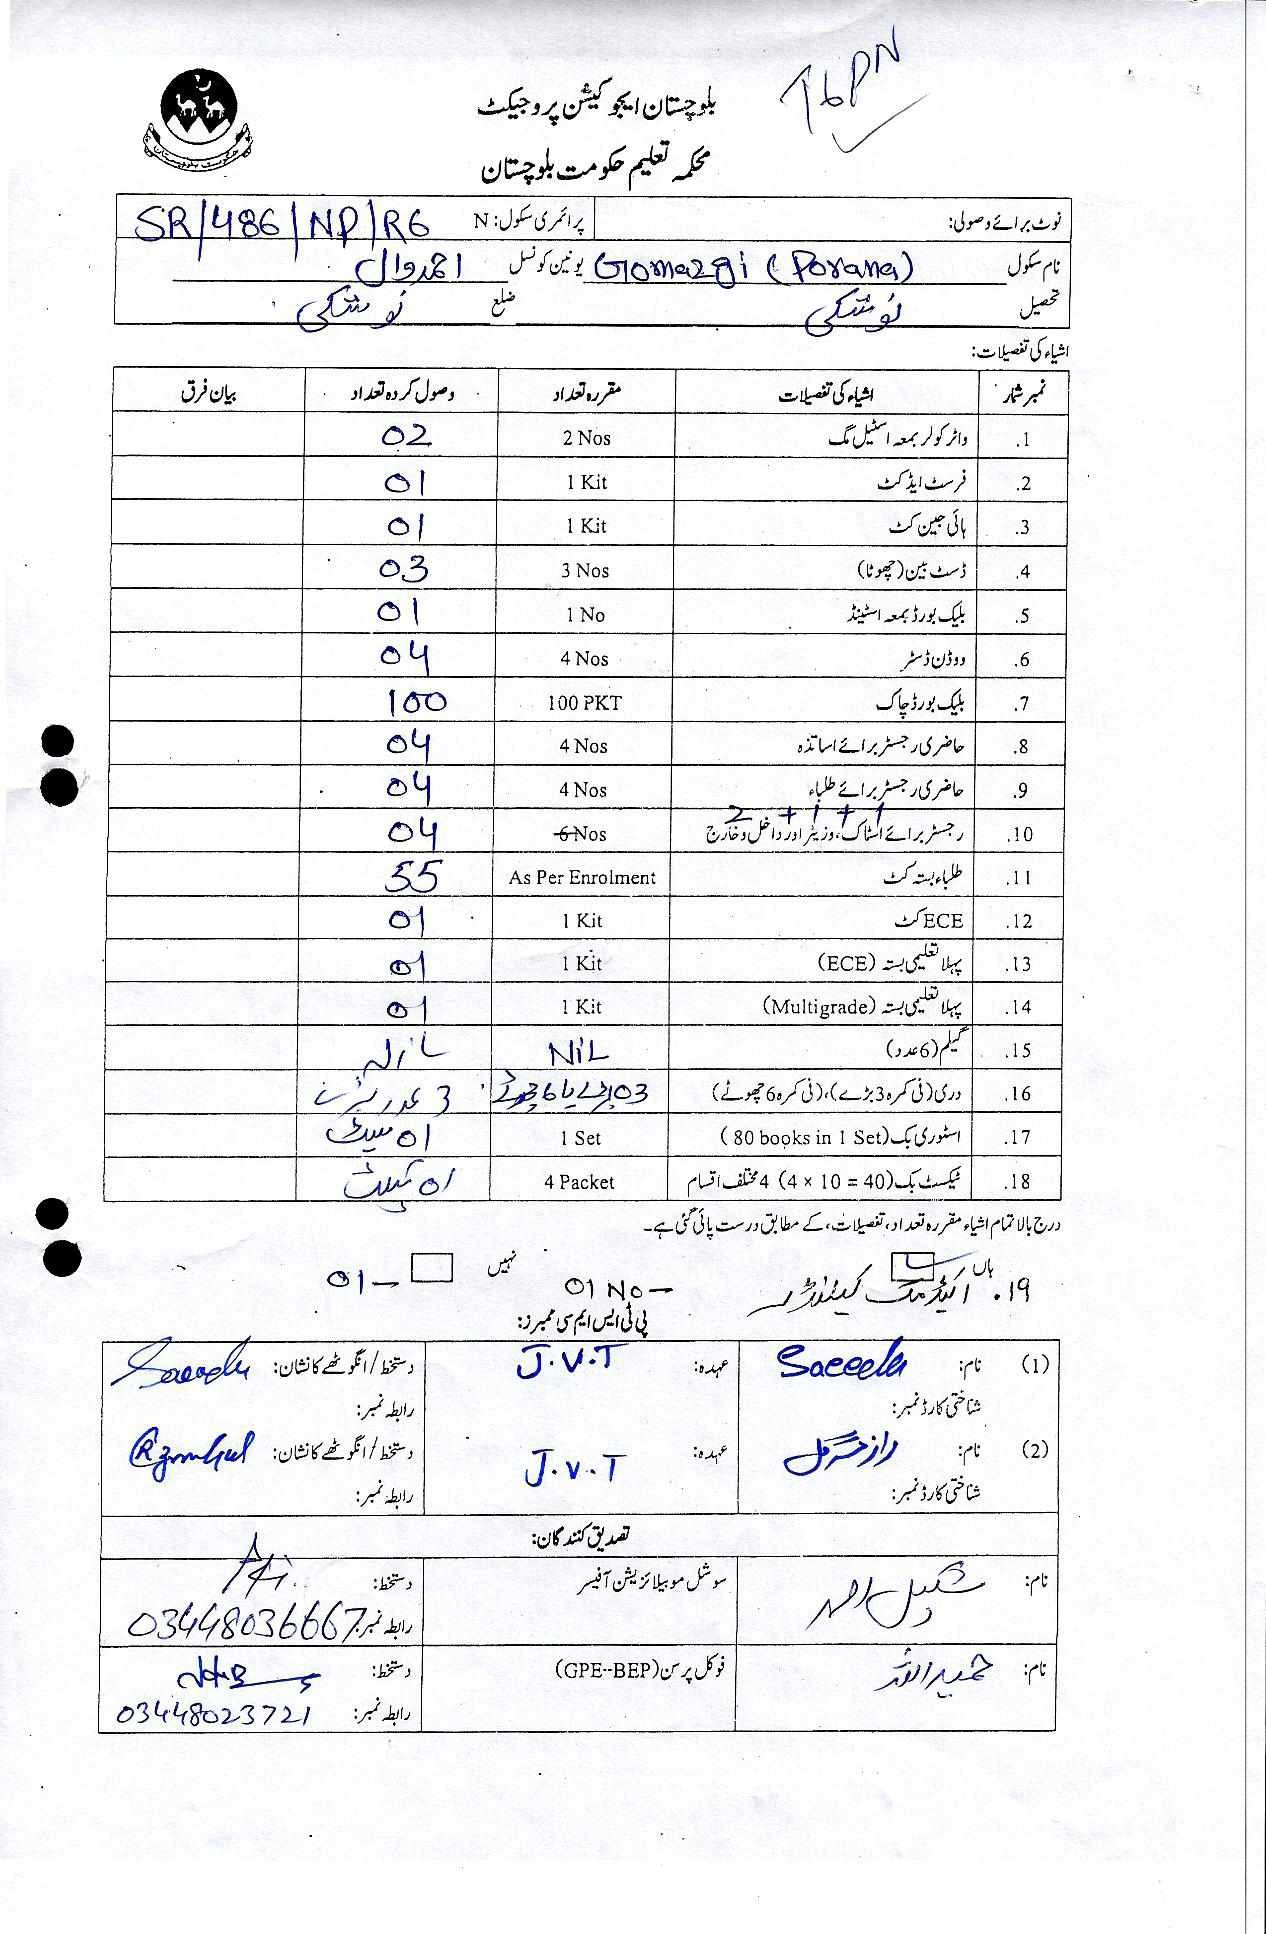 T6PN
بلوچستان ایجوکیشن پروجیکٹ
محکمہ تعلیم حکومت بلوچستان
حکومت بلوچستان
نوٹ برائے وصولی: پرائمری سکول: N SR/486/NP/R6
نام سکول Gomazgi (Porana) یونین کونسل احمد وال
تحصیل نوشکی ضلع نوشکی
اشیاء کی تفصیلات:
نمبر شمار اشیاء کی تفصیلات مقررہ تعداد وصول کردہ تعداد بیان فرق
1. واٹر کولر بمعہ اسٹیل مگ 2 Nos 02
2. فرسٹ ایڈ کٹ 1 Kit 01
3. ہائی جین کٹ 1 Kit 01
4. ڈسٹ بین (چھوٹا) 3 Nos 03
5. بلیک بورڈ بمعہ اسٹینڈ 1 No 01
6. ووڈن ڈسٹر 4 Nos 04
7. بلیک بورڈ چاک 100 PKT 100
8. حاضری رجسٹر برائے اساتذہ 4 Nos 04
9. حاضری رجسٹر برائے طلباء 4 Nos 04
2 + 1 + 1
10. رجسٹر برائے اسٹاک، وزیٹر اور داخل و خارج 6 Nos 04
11. طلباء بستہ کٹ As Per Enrolment 55
12. ECE کٹ 1 Kit 01
13. پہلا تعلیمی بستہ (ECE) 1 Kit 01
14. پہلا تعلیمی بستہ (Multigrade) 1 Kit 01
15. گیلم (6 عدد) NiL NiL
16. دری (فی کمرہ 3 بڑے)، (فی کمرہ 6 چھوٹے) 03 بڑے یا 6 چھوٹے 3 عدد بڑے
17. اسٹوری بک (80 books in 1 Set) 1 Set 01 سیٹ
18. ٹیکسٹ بک (4 × 10 = 40) 4 مختلف اقسام 4 Packet 01
درج بالا تمام اشیاء مقررہ تعداد، تفصیلات، کے مطابق درست پائی گئی ہے۔
ہاں نہیں
۱۹. اکیڈمک کیلنڈر 01 No — 01 —
پی ٹی ایس ایم سی ممبرز:
(1) نام: Saeeda عہدہ: J.V.T دستخط/انگوٹھے کا نشان: Saeeda
شناختی کارڈ نمبر: رابطہ نمبر:
(2) نام: عہدہ: J.V.T دستخط/انگوٹھے کا نشان:
شناختی کارڈ نمبر: رابطہ نمبر:
تصدیق کنندگان:
نام: شکیل احمد سوشل موبیلائزیشن آفیسر دستخط:
رابطہ نمبر: 03448036667
نام: حمید اللہ فوکل پرسن (GPE--BEP) دستخط:
رابطہ نمبر: 03448023721